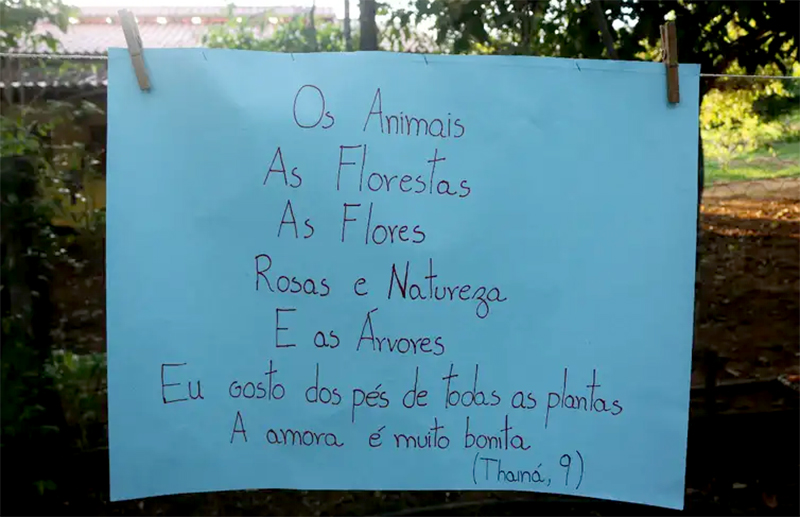 Os Animais
As Florestas
As Flores
Rosas e Natureza
E as Árvores
Eu gosto dos pés de todas as plantas
A amora é muito bonita
(Thainá, 9)